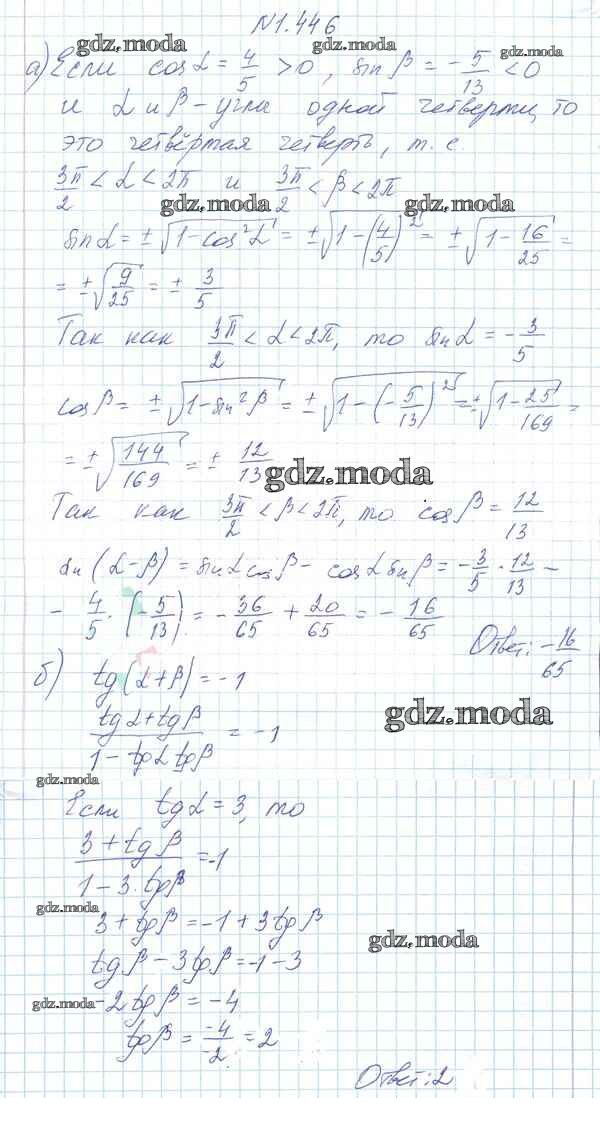 N1.446
gdz.moda
gdz.moda
а) Если cosα = 4/5 > 0, sinβ = -5/13 < 0
и α и β - углы одной четверти, то
это четвёртая четверть, т. е.
3π/2 < α < 2π и 3π/2 < β < 2π
gdz.moda
gdz.moda
sinα = ±√(1-cos²α) = ±√(1-(4/5)²) = ±√(1-16/25) =
= ±√(9/25) = ± 3/5
Так как 3π/2 < α < 2π, то sinα = -3/5
cosβ = ±√(1-sin²β) = ±√(1-(-5/13)²) = ±√(1-25/169) =
= ±√(144/169) = ± 12/13
gdz.moda
Так как 3π/2 < β < 2π, то cosβ = 12/13
sin(α-β) = sinα cosβ - cosα sinβ = -3/5 · 12/13 -
- 4/5 · (-5/13) = -36/65 + 20/65 = -16/65
Ответ: -16/65
б) tg(α+β) = -1
(tgα+tgβ)/(1-tgα tgβ) = -1
gdz.moda
gdz.moda
Если tgα = 3, то
(3+tgβ)/(1-3·tgβ) = -1
gdz.moda
3+tgβ = -1+3tgβ
gdz.moda
tgβ-3tgβ = -1-3
gdz.moda
-2tgβ = -4
tgβ = -4/-2 = 2
Ответ: 2